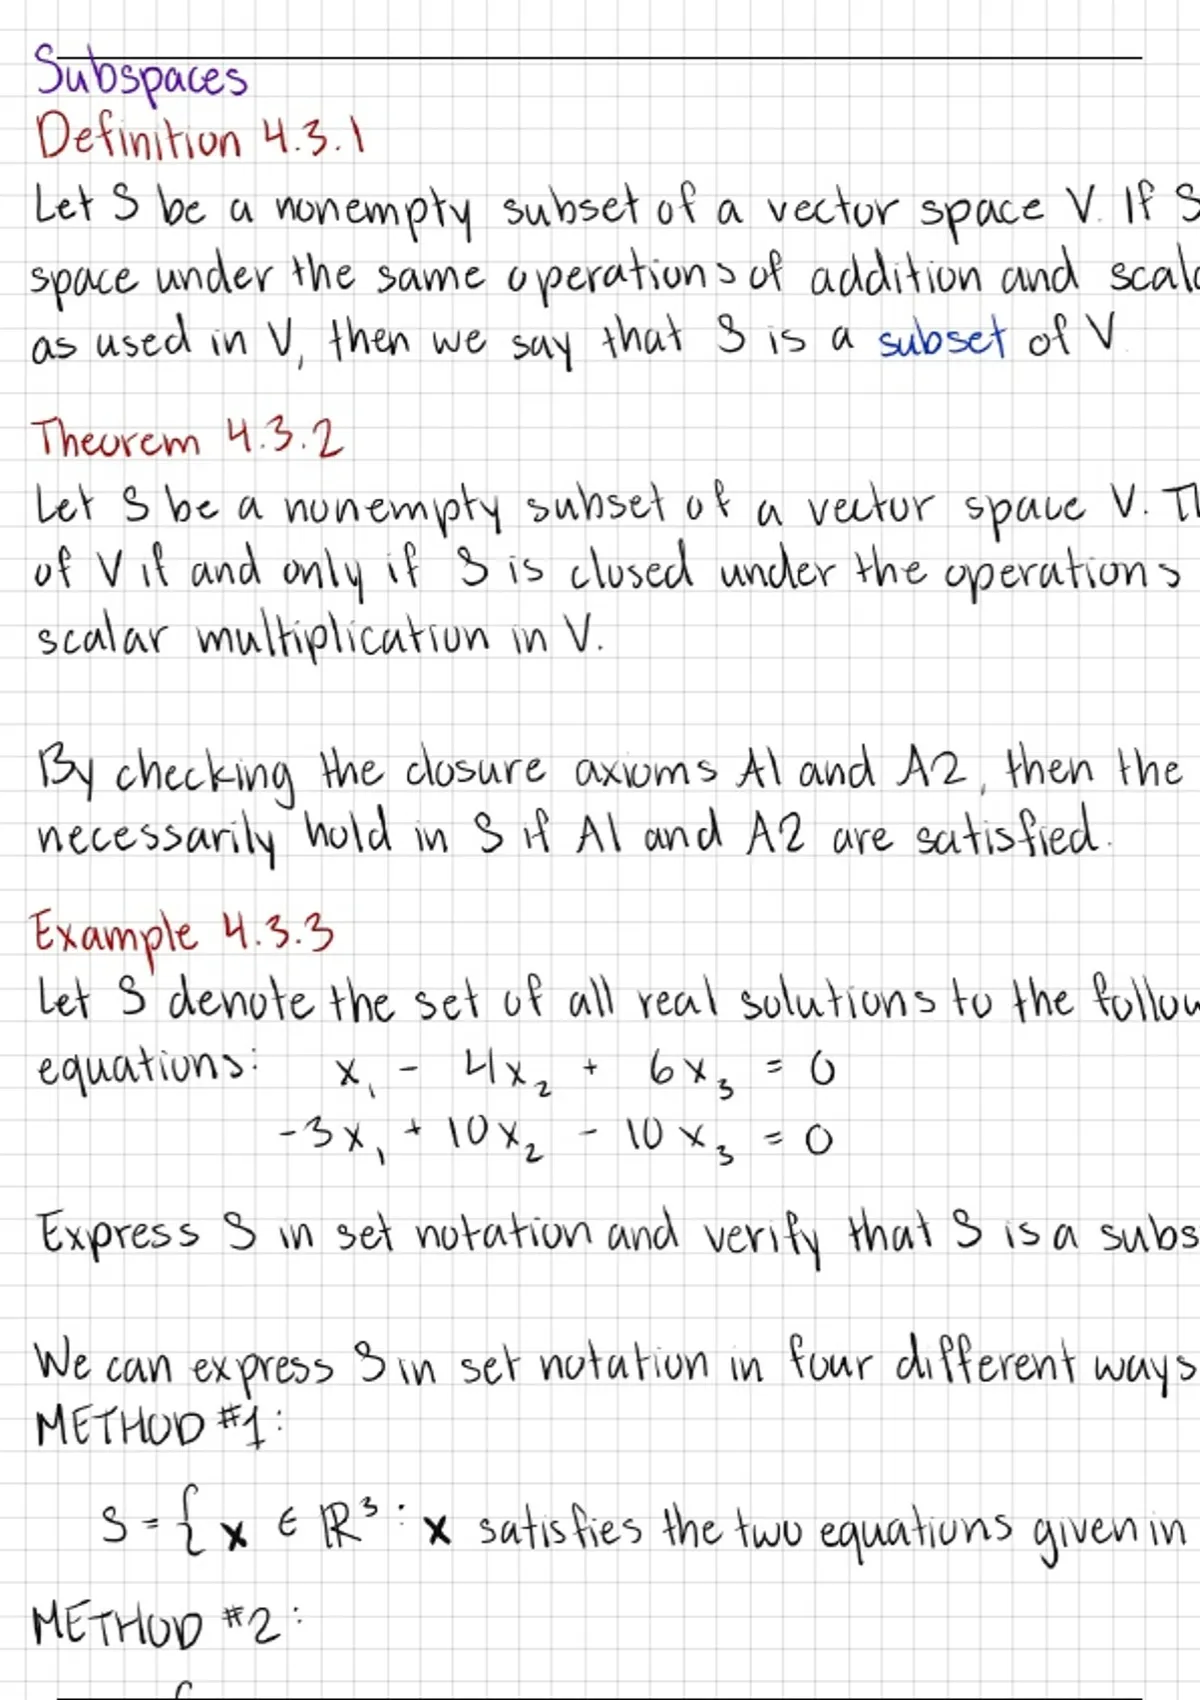 Subspaces
Definition 4.3.1
Let S be a nonempty subset of a vector space V. If S
space under the same operations of addition and scala
as used in V, then we say that S is a subset of V
Theorem 4.3.2
Let S be a nonempty subset of a vector space V. Th
of V if and only if S is closed under the operations
scalar multiplication in V.
By checking the closure axioms A1 and A2, then the
necessarily hold in S if A1 and A2 are satisfied.
Example 4.3.3
Let S denote the set of all real solutions to the follow
equations: x₁ - 4x₂ + 6x₃ = 0
-3x₁ + 10x₂ - 10x₃ = 0
Express S in set notation and verify that S is a subs
We can express S in set notation in four different ways
METHOD #1:
S = { x ∈ ℝ³ : x satisfies the two equations given in
METHOD #2: